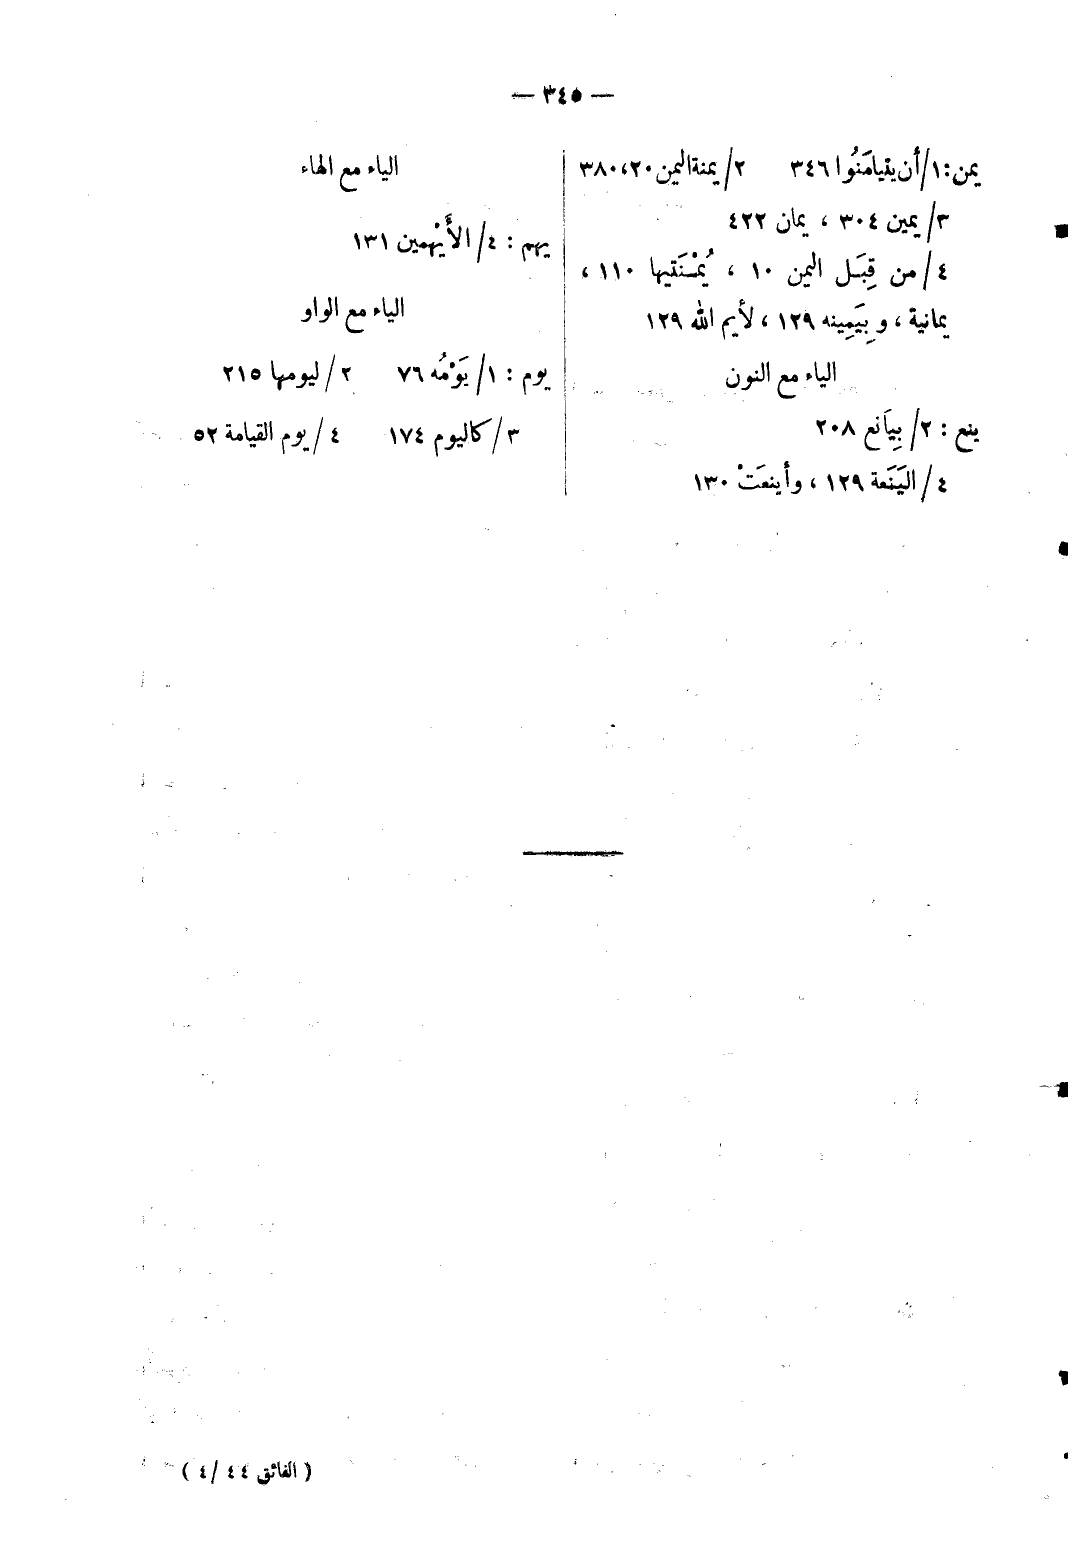 — ٣٤٥ —
يمن: ١/أن يتيامَنُوا ٣٤٦ ٢/ يمنة اليمن ٢٠، ٣٨٠
٣/ يمين ٣٠٤ ، يمان ٤٢٢
٤/ من قِبَل اليمن ١٠ ، يُمْنَتيها ١١٠ ،
يمانية ، وبِيَمِينه ١٢٩ ، لأيم الله ١٢٩
الياء مع النون
ينع : ٢/ بِيَانع ٢٠٨
٤/ اليَنَعة ١٢٩ ، وأينعَتْ ١٣٠
الياء مع الهاء
يهم : ٤/ الأَيْهمين ١٣١
الياء مع الواو
يوم : ١/ يَوْمُه ٧٦ ٢/ ليومها ٢١٥
٣/ كاليوم ١٧٤ ٤/ يوم القيامة ٥٢
( الفائق ٤٤ /٤ )